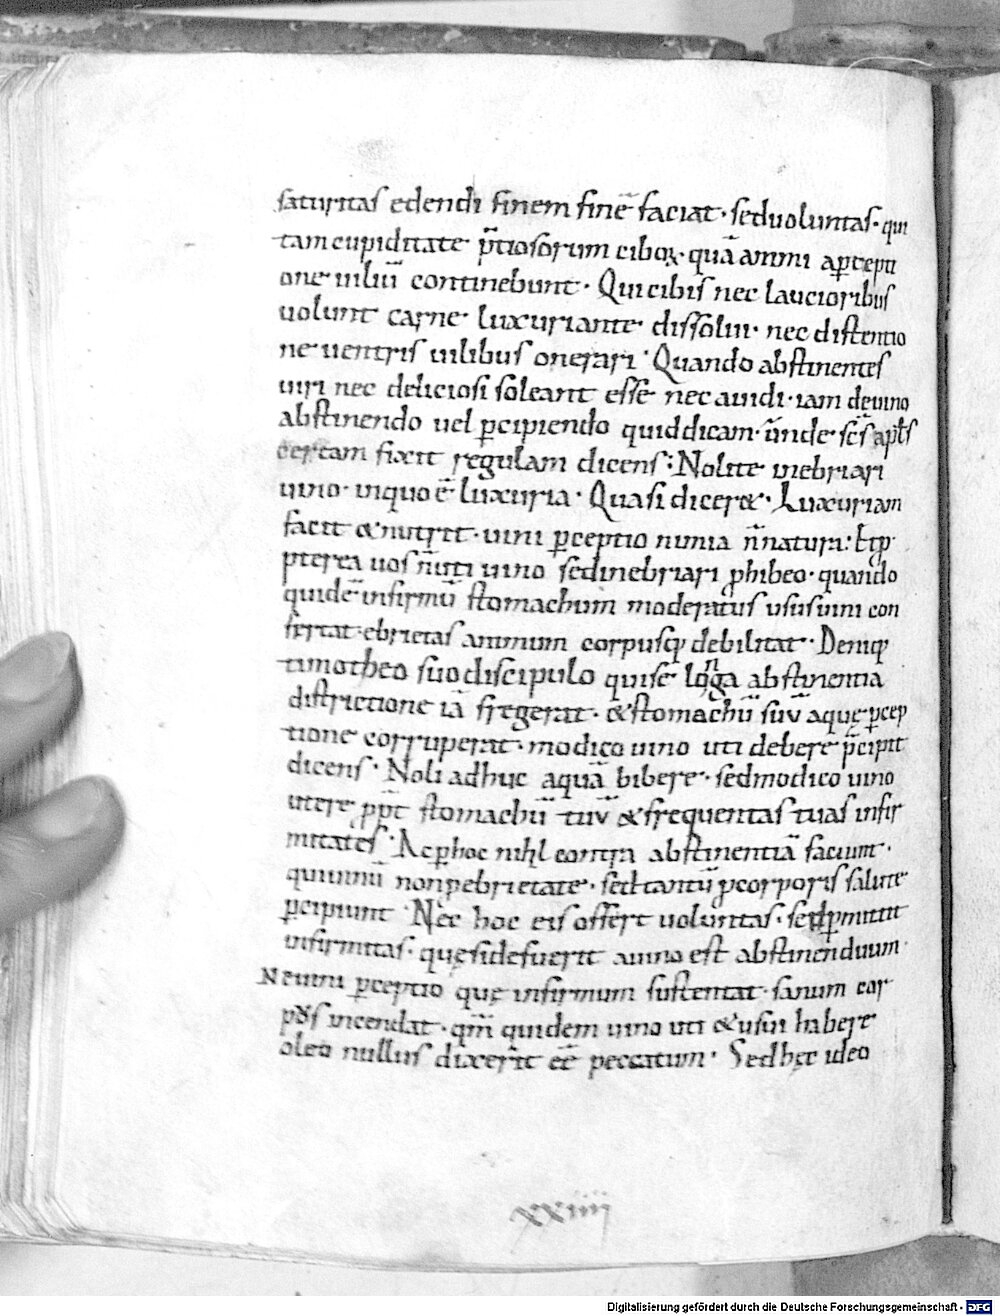 saturitas edendi finem finē faciat· sed uoluntas· qui
tam cupiditate p̄tiosorum ciboꝝ· quā animi a ꝑcepti
one uiliū continebunt· Qui cibis nec laucioribus
uolunt carne luxuriante dissolui· nec distentio
ne uentris uilibus onerari· Quando abstinentes
uiri nec deliciosi soleant esse nec auidi· iam de uino
abstinendo uel ꝑcipiendo quid dicam· unde sc̄s apl̄s
certam fixit regulam dicens· Nolite inebriari
uino· in quo ē luxuria· Quasi diceret· Luxuriam
facit & nutrit· uini ꝑceptio nimia n̄ natura: Et ꝓ
pterea uos n̄ uti uino sed inebriari ꝓhibeo· quando
quidē infirmū stomachum moderatus usus uini con
fertat· ebrietas animum corpusq; debilitat· Deniq;
timotheo suo discipulo qui se longa abstinentia
districtione iā fregerat· & stomachū suū aquę ꝑcep
tione corruperat· modico uino uti debere p̄cipit
dicens· Noli adhuc aquā bibere· sed modico uino
utere ꝓpt̄ stomachū tuū & frequentas tuas infir
mitates· Ac ꝑ hoc nihl contra abstinentiā faciunt·
qui uinū non ꝓ ebrietate· sed tantū ꝓ corporis salute
ꝑcipiunt· Nec hoc eis offert uoluntas· sed ꝑmittit
infirmitas· quę si defuerit a uino est abstinendum·
Ne uini ꝑceptio quę infirmum sustentat· sanum cor
p̄s incendat· qm̄ quidem uino uti & usui habere
oleo nullus dixerit eē peccatum· Sed hęc ideo
xxiiii
Digitalisierung gefördert durch die Deutsche Forschungsgemeinschaft - DFG